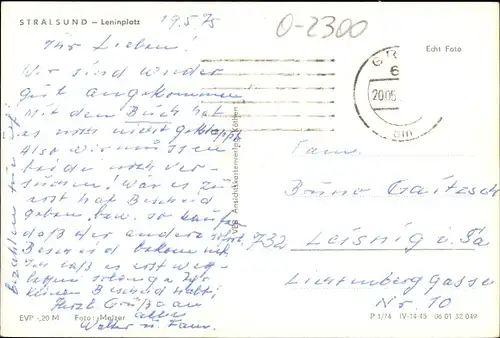 STRALSUND – Leninplatz
19.5.75
O-2300
Ihr Lieben!
Wir sind wieder
gut angekommen!
Mit dem Buch hat
es noch nicht geklappt.
Also wir müssen
beide noch ver-
suchen! Wer es zu-
erst hat Bescheid
geben, bzw. so kaufen
daß der andere
Bescheid
Ich laß es erst
kleinen Bescheid habt,
Herzl. Grüße an
alle
Walter u. Fam.
EVP -,20 M Foto: Melzer
VEB Ansichtskartenverlag Köthen
Echt Foto
GR
6
20.05.
Fam.
Bruno
732 Leisnig i. Sa
Lichtenberg Gasse
Nr. 10
P 1/74 IV-14-45 06 01 32 049